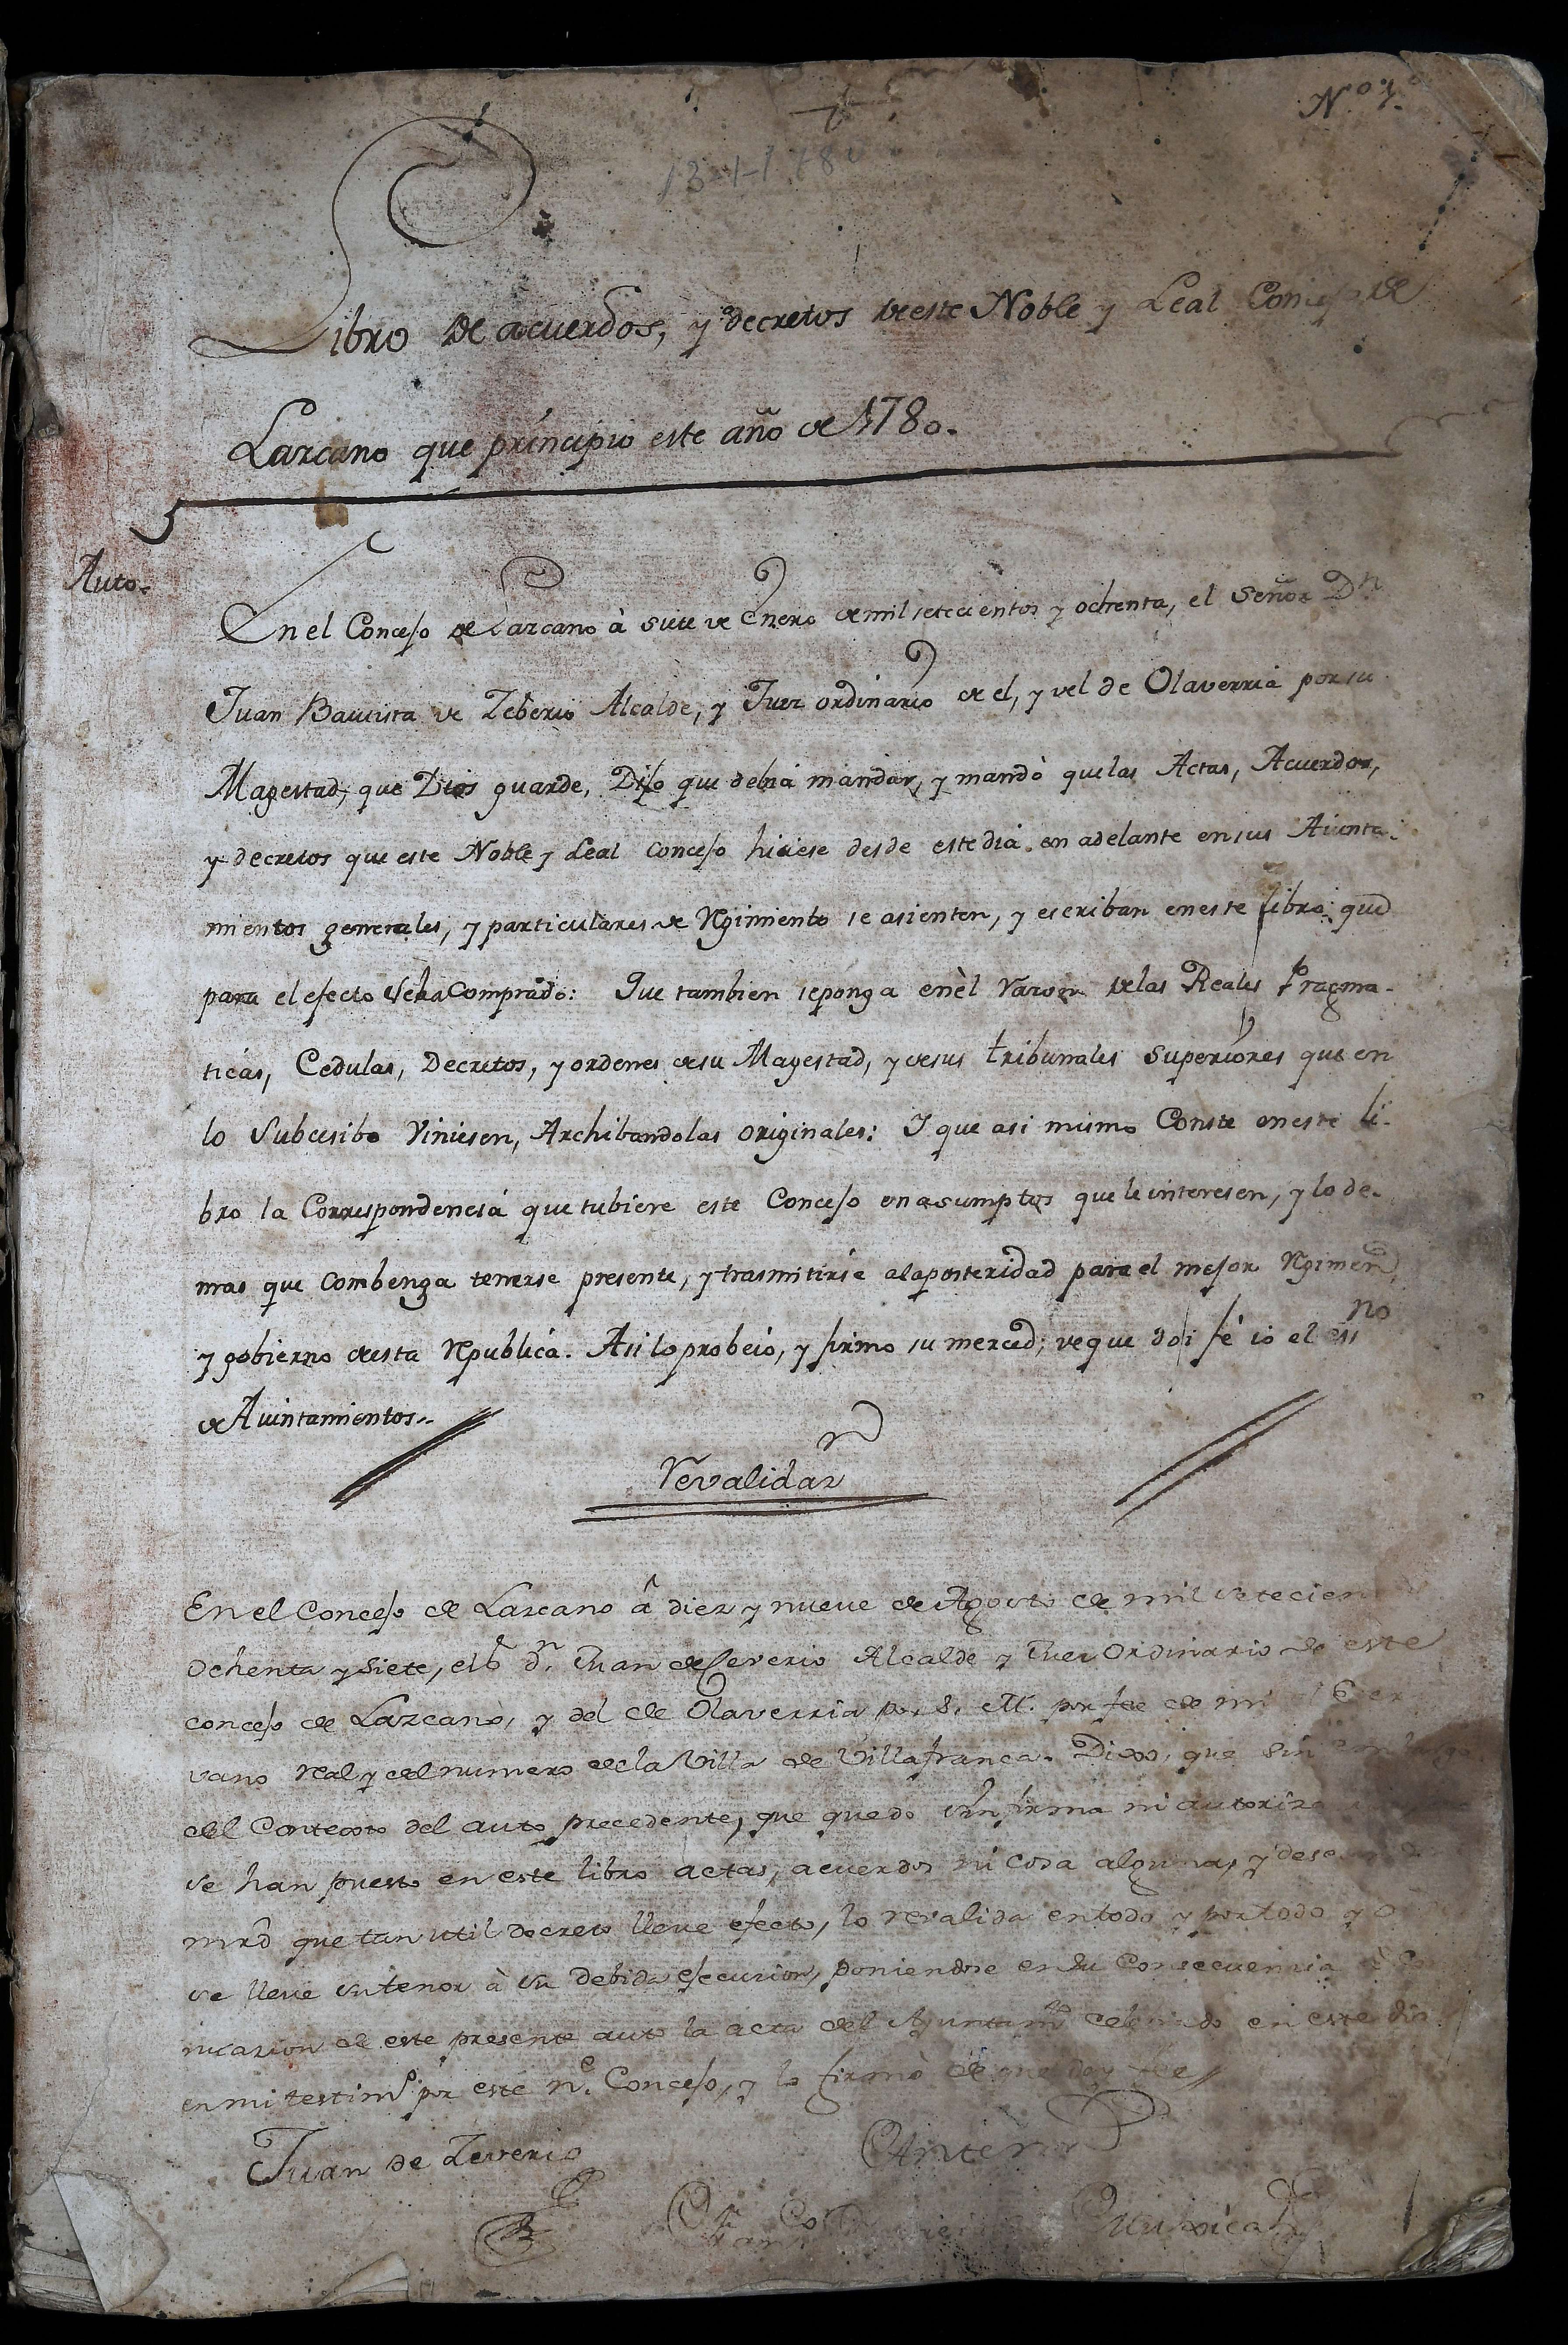 Nº 1º
13-1-178
Libro de acuerdos, y decretos de este Noble y Leal Concejo de
Lazcano que principio este año de 1780.
Auto.
En el Concejo de Lazcano à siete de Enero de mil setecientos y ochenta, el Señor Dn
Juan Bautista de Zeberio Alcalde, y Juez ordinario de el, y del de Olaverria por su
Magestad, que Dios guarde, Dijo que debia mandar, y mandò que las Actas, Acuerdos,
y decretos que este Noble y Leal Concejo hiciese desde este dia en adelante en sus Aiunta-
mientos generales, y particulares de Regimiento se asienten, y escriban en este libro que
para el efecto se ha Comprado: Que tambien se ponga en èl Razon de las Reales Pragma-
ticas, Cedulas, Decretos, y ordenes de su Magestad, y de sus tribunales Superiores que en
lo Subcesibo Viniesen, Archibandolas originales: I que asi mismo Conste en este li-
bro la Correspondencia que tubiere este Concejo en asumptos que le interesen, y lo de-
mas que combenga tenerse presente, y trasmitirse a la posteridad para el mejor Regimen,
y gobierno de esta Republica. Asi lo probeió, y firmo su merced; de que doi fé io el essno
de Aiuntamientos..
Revalidazn
En el Concejo de Lazcano â diez y nueve de Agosto de mil setecien
ochenta y siete, el Sr dn. Juan de Zeverio Alcalde y Juez Ordinario de este
concejo de Lazcano, y del de Olaverria por S. M. por fee de mi el Escri
vano real y del numero de la Villa de Villafranca. Dixo, que sin embargo
del Contexto del auto precedente, que quedo sin firma ni autoriza
se han puesto en este libro actas, acuerdos ni cosa alguna, y
mrd que tan util decreto lleve efecto, lo revalida en todo y por todo y
se lleve su tenor à su debida ejecucion, poniendose en su Consecuencia
nuacion de este presente auto la acta del Ayuntamto celebrado en este dia
en mi testimo por este ne. Concejo, y lo firmò de que doy fee
Juan de Zeverio
Ante mi